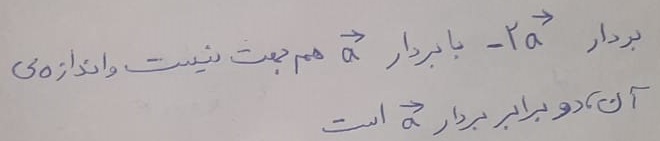 بردار -۲a⃗ با بردار a⃗ هم جهت نیست و اندازه‌ی
آن، دو برابر بردار a⃗ است